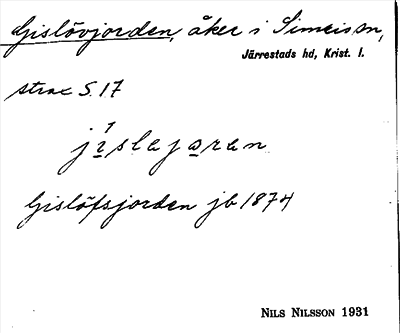 Gislövjorden, åker i Simris sn,
Järrestads hd, Krist. l.
strax S. 17
jislajoran
Gislöfsjorden jb 1874
NILS NILSSON 1931